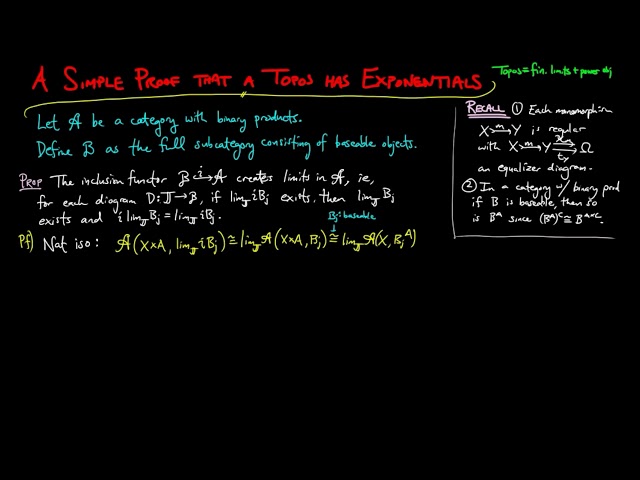 A SIMPLE PROOF THAT A TOPOS HAS EXPONENTIALS
Topos = fin. limits + power obj
Let 𝒜 be a category with binary products.
Define ℬ as the full subcategory consisting of baseable objects.
PROP The inclusion functor ℬ →ⁱ 𝒜 creates limits in 𝒜, ie,
for each diagram D: 𝕁 → ℬ, if lim_𝕁 iBⱼ exists, then lim_𝕁 Bⱼ
exists and i lim_𝕁 Bⱼ = lim_𝕁 iBⱼ.
Bⱼ: baseable
Pf) Nat iso: 𝒜(X×A, lim_𝕁 iBⱼ) ≅ lim_𝕁 𝒜(X×A, Bⱼ) ≅ lim_𝕁 𝒜(X, Bⱼᴬ)
RECALL ① Each monomorphism
X >ᵐ→ Y is regular
with X >ᵐ→ Y ⇉ Ω
an equalizer diagram.
② In a category w/ binary prod
if B is baseable, then so
is Bᴬ since (Bᴬ)ᶜ ≅ Bᴬˣᶜ.